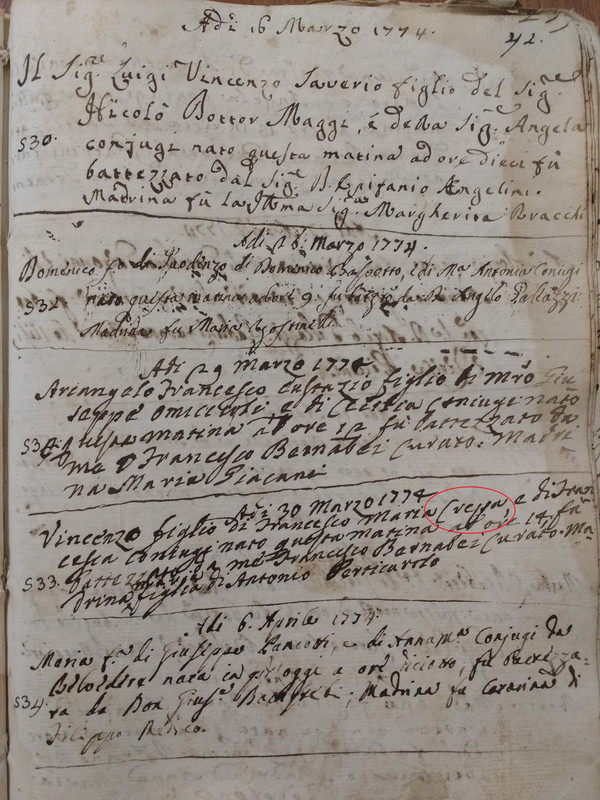 Adi 16 Marzo 1774.
42.
Il Sig.e Luigi Vincenzo Saverio figlio del Sig.e
Nicolò Dottor Maggi, é della Sig.a Angela
530.
conjugi nato questa matina ad ore dieci fú
battezzato dal Sig.e D. Epifanio Angelini.
Madrina fú la Ill̃ma Sig.ra Margherita Bracchi
Adi 16: Marzo 1774.
Domenico fo di Gaudenzo di Domenico, e di M.a Antonia Coniugi
nato questa matina ad ore 9. fu da D. Angelo Pallazzi
Madrina fu Maria Agostinelli
Adi 29 Marzo 1774
Arcangelo Francesco Eustazio figlio di Mrõ Giu
seppe Omiccioli e di Coniugi nato
questa matina ad ore 12 fu battezzato da
me D Francesco Bernabei Curato. Madri
na Maria Giacani
Adi 30 Marzo 1774
Vincenzo figlio di Francesco Maria Cressa, e di Fran
cesca coniugi nato questa matina ad ore 14, fu
533.
battezzato da me Francesco Bernabei Curato. Ma
drina figlia di Antonio Perticarolo
Adi 6. Aprile 1774.
Maria f.a di Giuseppe Pancotti, e di Annam.a Conjugi da
Belvedere nata oggi a ore diciotto, fu battezza-
534.
ta da Don Gius.e Madrina fu Catarina di
Filippo